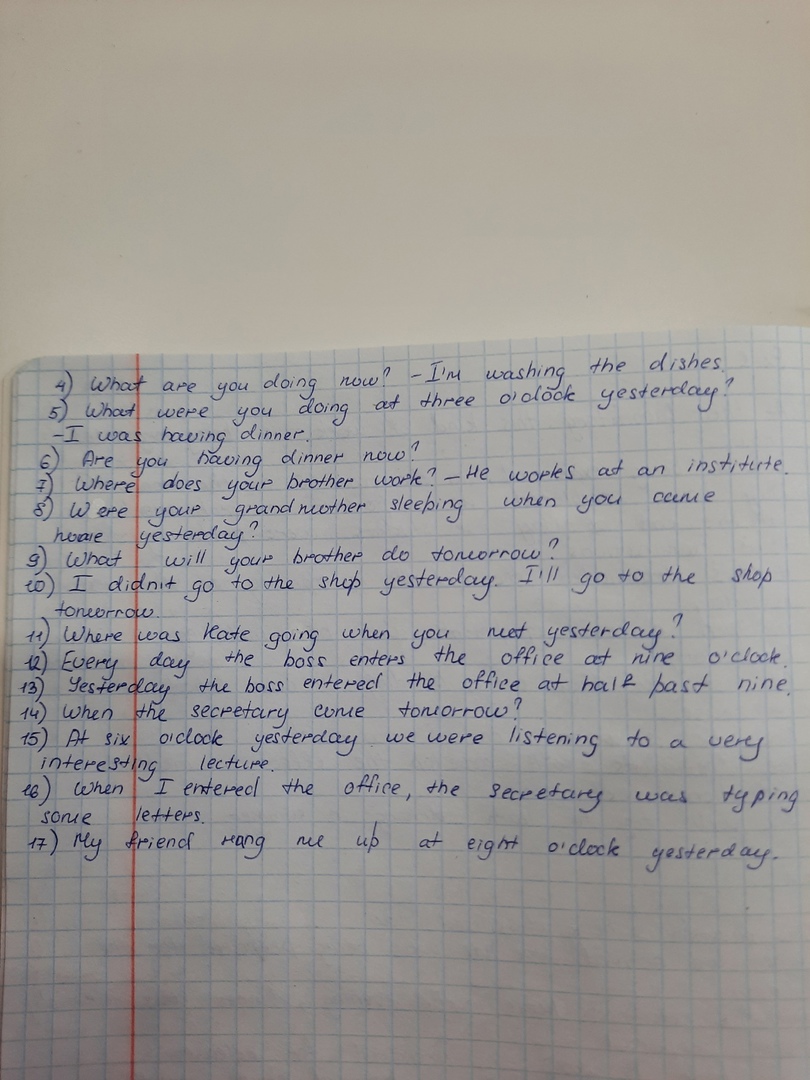 4) What are you doing now? - I'm washing the dishes.
5) What were you doing at three o'clock yesterday?
- I was having dinner.
6) Are you having dinner now?
7) Where does your brother work? - He works at an institute.
8) Were your grandmother sleeping when you came
home yesterday?
9) What will your brother do tomorrow?
10) I didn't go to the shop yesterday. I'll go to the shop
tomorrow.
11) Where was Kate going when you met yesterday?
12) Every day the boss enters the office at nine o'clock.
13) Yesterday the boss entered the office at half past nine.
14) When the secretary come tomorrow?
15) At six o'clock yesterday we were listening to a very
interesting lecture.
16) When I entered the office, the secretary was typing
some letters.
17) My friend rang me up at eight o'clock yesterday.